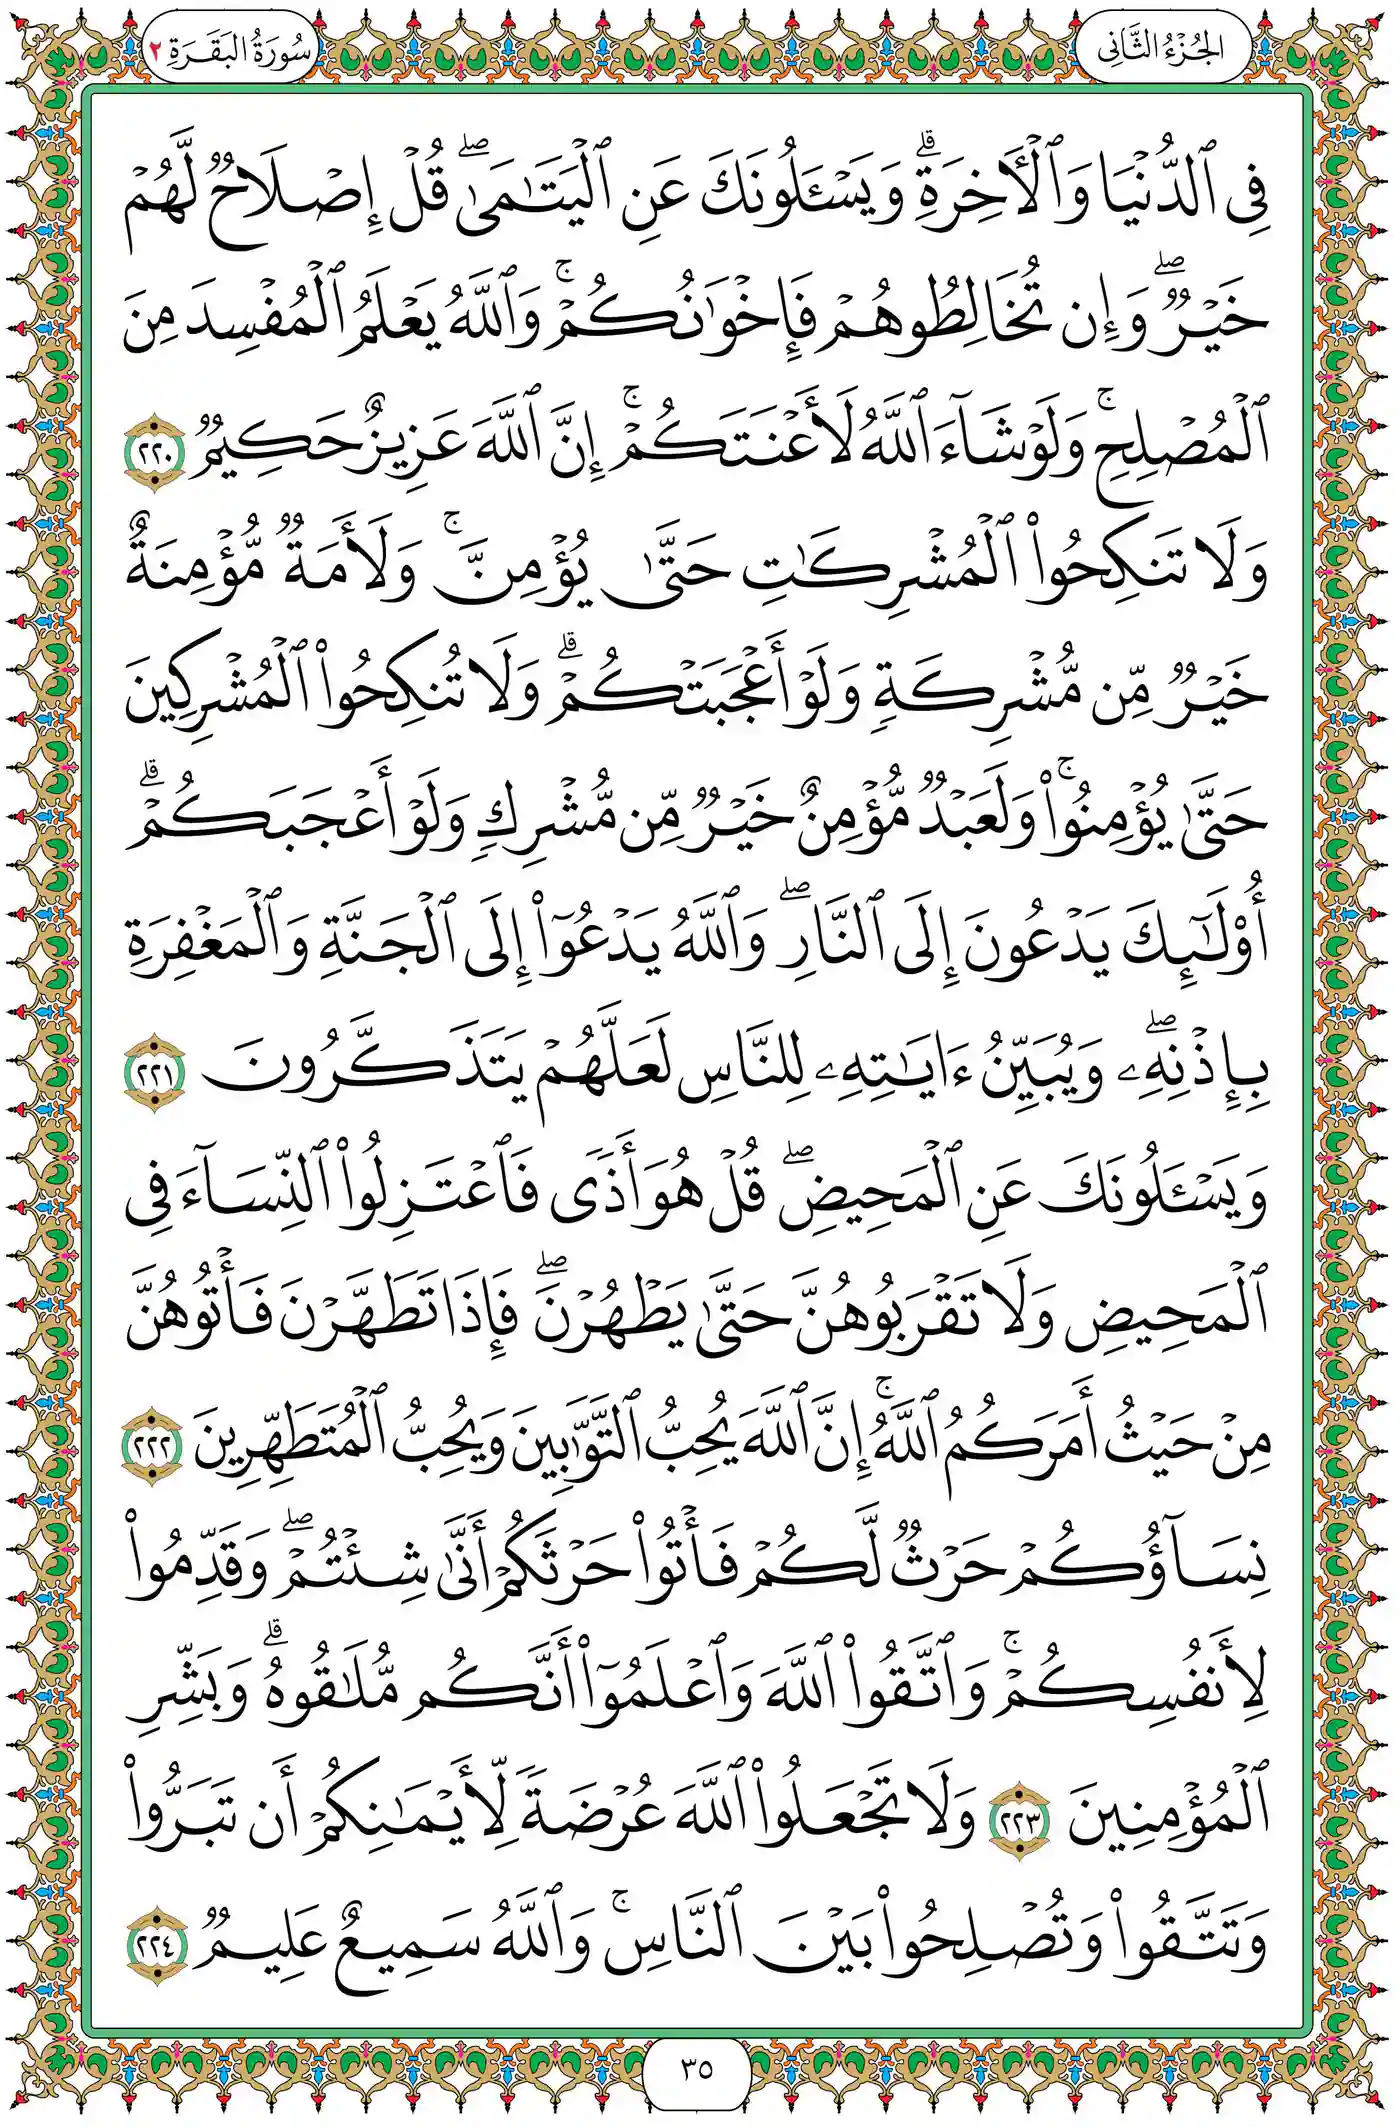 الجُزْءُ الثَّانِى
سُورَةُ البَقَرَةِ ٢
فِى ٱلدُّنْيَا وَٱلْـَٔاخِرَةِۗ وَيَسْـَٔلُونَكَ عَنِ ٱلْيَتَـٰمَىٰۖ قُلْ إِصْلَاحٌ لَّهُمْ
خَيْرٌۖ وَإِن تُخَالِطُوهُمْ فَإِخْوَٰنُكُمْۚ وَٱللَّهُ يَعْلَمُ ٱلْمُفْسِدَ مِنَ
ٱلْمُصْلِحِۚ وَلَوْ شَآءَ ٱللَّهُ لَأَعْنَتَكُمْۚ إِنَّ ٱللَّهَ عَزِيزٌ حَكِيمٌ ٢٢٠
وَلَا تَنكِحُوا۟ ٱلْمُشْرِكَـٰتِ حَتَّىٰ يُؤْمِنَّۚ وَلَأَمَةٌ مُّؤْمِنَةٌ
خَيْرٌ مِّن مُّشْرِكَةٍ وَلَوْ أَعْجَبَتْكُمْۗ وَلَا تُنكِحُوا۟ ٱلْمُشْرِكِينَ
حَتَّىٰ يُؤْمِنُوا۟ۚ وَلَعَبْدٌ مُّؤْمِنٌ خَيْرٌ مِّن مُّشْرِكٍ وَلَوْ أَعْجَبَكُمْۗ
أُو۟لَـٰٓئِكَ يَدْعُونَ إِلَى ٱلنَّارِۖ وَٱللَّهُ يَدْعُوٓا۟ إِلَى ٱلْجَنَّةِ وَٱلْمَغْفِرَةِ
بِإِذْنِهِۦۖ وَيُبَيِّنُ ءَايَـٰتِهِۦ لِلنَّاسِ لَعَلَّهُمْ يَتَذَكَّرُونَ ٢٢١
وَيَسْـَٔلُونَكَ عَنِ ٱلْمَحِيضِۖ قُلْ هُوَ أَذًى فَٱعْتَزِلُوا۟ ٱلنِّسَآءَ فِى
ٱلْمَحِيضِ وَلَا تَقْرَبُوهُنَّ حَتَّىٰ يَطْهُرْنَۖ فَإِذَا تَطَهَّرْنَ فَأْتُوهُنَّ
مِنْ حَيْثُ أَمَرَكُمُ ٱللَّهُۚ إِنَّ ٱللَّهَ يُحِبُّ ٱلتَّوَّٰبِينَ وَيُحِبُّ ٱلْمُتَطَهِّرِينَ ٢٢٢
نِسَآؤُكُمْ حَرْثٌ لَّكُمْ فَأْتُوا۟ حَرْثَكُمْ أَنَّىٰ شِئْتُمْۖ وَقَدِّمُوا۟
لِأَنفُسِكُمْۚ وَٱتَّقُوا۟ ٱللَّهَ وَٱعْلَمُوٓا۟ أَنَّكُم مُّلَـٰقُوهُۗ وَبَشِّرِ
ٱلْمُؤْمِنِينَ ٢٢٣ وَلَا تَجْعَلُوا۟ ٱللَّهَ عُرْضَةً لِّأَيْمَـٰنِكُمْ أَن تَبَرُّوا۟
وَتَتَّقُوا۟ وَتُصْلِحُوا۟ بَيْنَ ٱلنَّاسِۚ وَٱللَّهُ سَمِيعٌ عَلِيمٌ ٢٢٤
٣٥